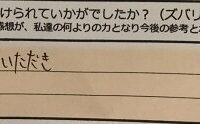 けられていかがでしたか？（ズバリ
感想が、私達の何よりの力となり今後の参考と
いただき